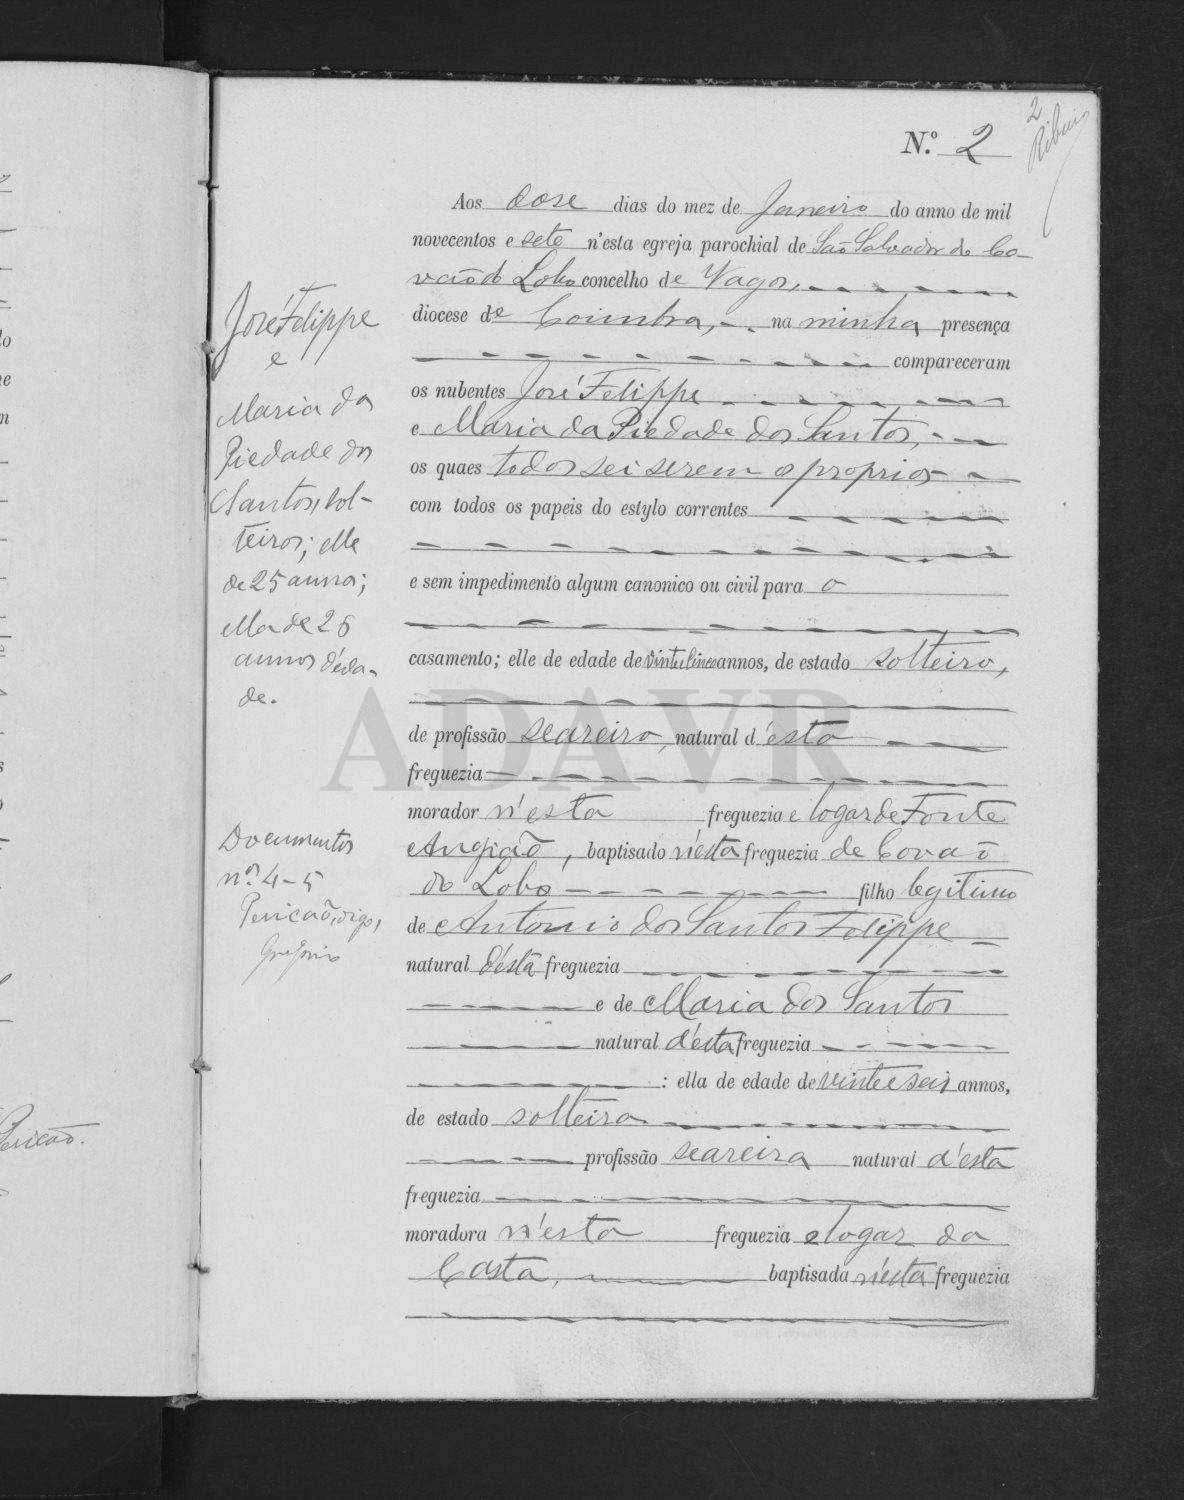 2
Ribeiro
N.º 2
Aos dose dias do mez de Janeiro do anno de mil
novecentos e sete n'esta egreja parochial de São Salvador do Co-
vão do Lobo concelho de Vagos,
diocese de Coimbra, na minha presença
compareceram
os nubentes José Felippe
e Maria da Piedade dos Santos,
os quaes todos sei serem os proprios
com todos os papeis do estylo correntes
e sem impedimento algum canonico ou civil para o
casamento; elle de edade de vinte e cinco annos, de estado solteiro,
de profissão seareiro, natural d'esta
freguezia
morador n'esta freguezia e logar de Fonte
Angião, baptisado n'esta freguezia de Covaõ
do Lobo filho legitimo
de Antonio dos Santos Felippe
natural d'esta freguezia
e de Maria dos Santos
natural d'esta freguezia
: ella de edade de vinte e seis annos,
de estado solteira
profissão seareira natural d'esta
freguezia
moradora n'esta freguezia e logar da
Costa, baptisada n'esta freguezia
José Felippe
e
Maria da
Piedade dos
Santos, sol-
teiros; elle
de 25 annos;
ella de 26
annos d'eda-
de.
Documentos
nos. 4-5
Pericaõ, digo,
Gregorio
Pericaõ.
ADAVR